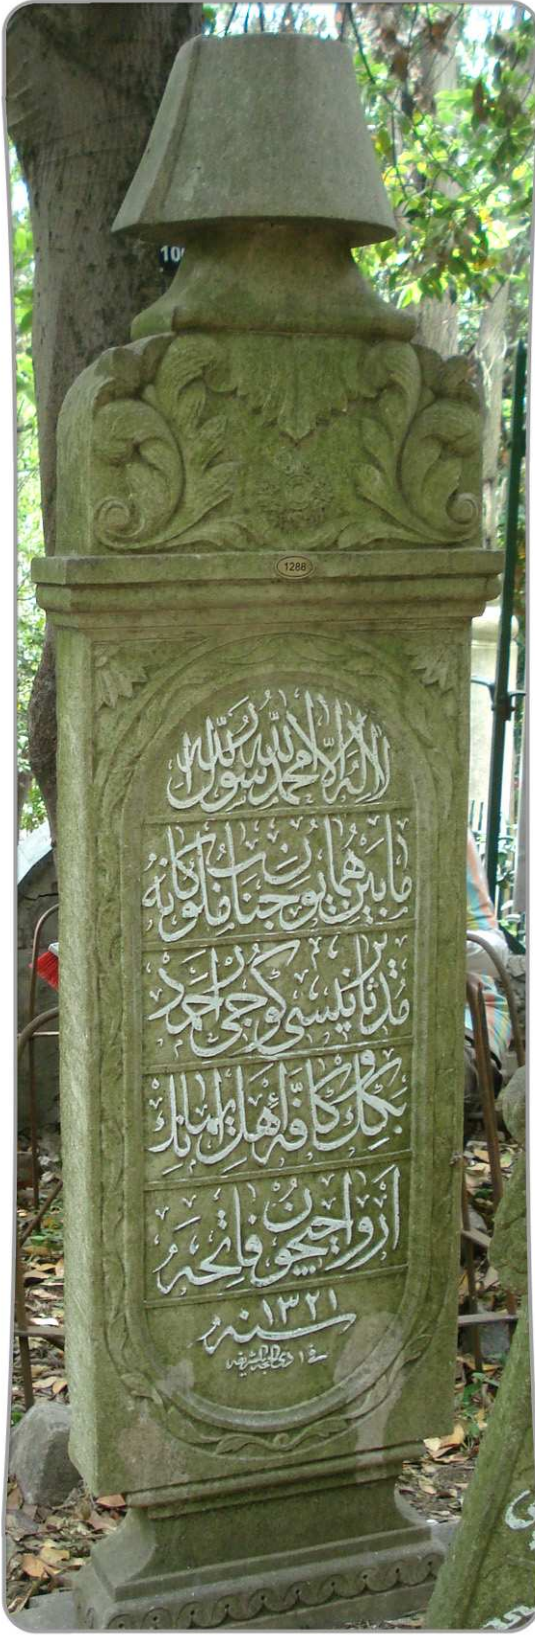 100
1288
لا اله الا الله محمد رسول الله
مابين همايون جناب ملوكانه
كوجى احمد
بكك و كافة اهل ايمانك
ارواحيچون فاتحه
سنه ١٣٢١
فى ١ ذى الحجة الشريفه